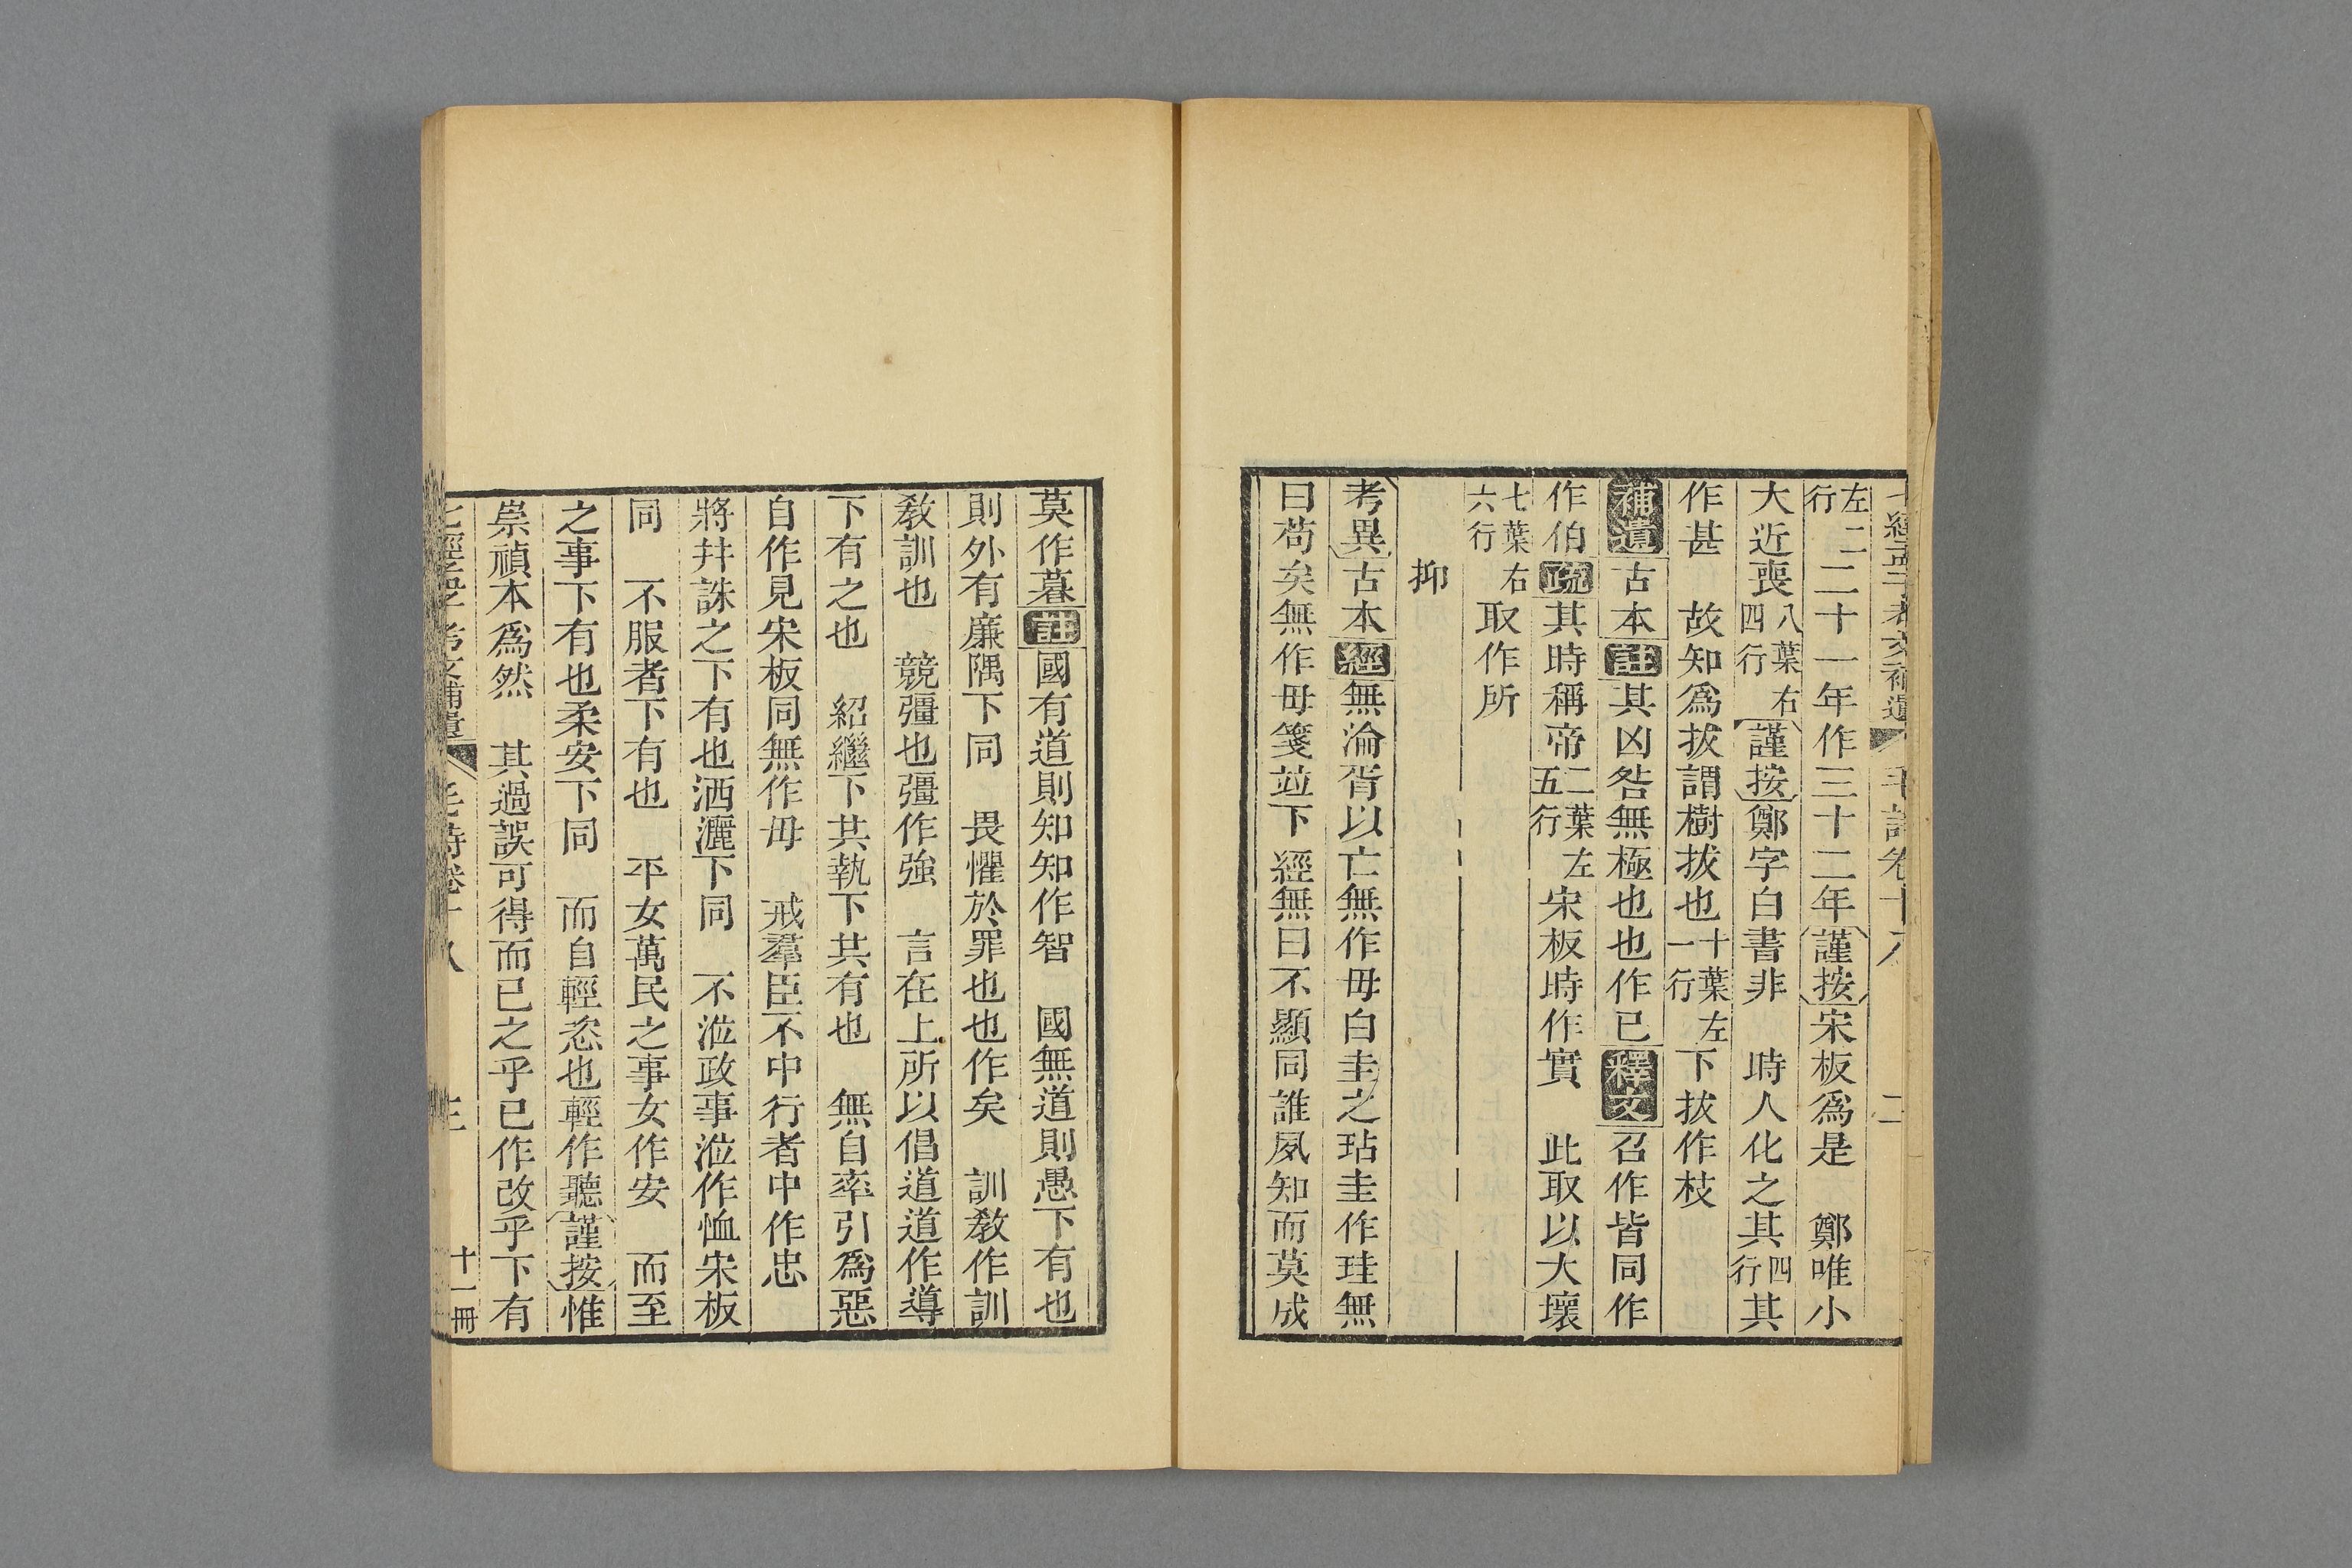 七經孟子考文補遺 毛詩卷十八 二
左二行 二十一年作三十二年謹按宋板爲是 鄭唯小
大近喪八葉右四行 謹按鄭字白書非 時人化之其四行其
作甚 故知爲拔謂樹拔也十葉左一行下拔作枝
補遺古本註其凶咎無極也也作已釋文召作皆同作
作伯疏其時稱帝二葉左五行宋板時作實 此取以大壞
七葉右六行取作所
抑
考異古本經無淪胥以亡無作毋白圭之玷圭作珪無
曰苟矣無作毋箋竝下 經無曰不顯同誰夙知而莫成
莫作暮註國有道則知知作智 國無道則愚下有也
則外有廉隅下同 畏懼於罪也也作矣 訓敎作訓
敎訓也 競彊也彊作強 言在上所以倡道道作導
下有之也 紹繼下共執下共有也 無自率引爲惡
自作見宋板同無作毋 戒羣臣不中行者中作忠
將幷誅之下有也洒灑下同 不涖政事涖作恤宋板
同 不服者下有也 平女萬民之事女作安 而至
之事下有也柔安下同 而自輕恣也輕作聽謹按惟
崇禎本爲然 其過誤可得而已之乎已作改乎下有
七經孟子考文補遺 毛詩卷十八 三 十一冊